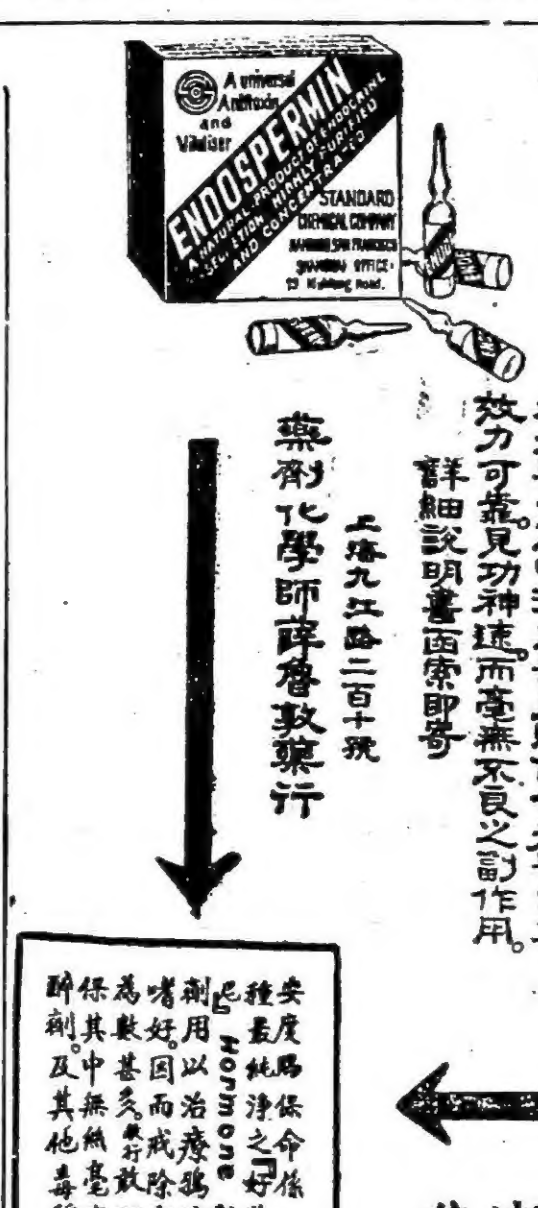 A universal
Antitoxin
and
Vitalizer
ENDOSPERMIN
A NATURAL PRODUCT OF ENDOCRINE
SECRETION HIGHLY PURIFIED
AND CONCENTRATED
STANDARD
CHEMICAL COMPANY
SAN FRANCISCO
SHANGHAI OFFICE:
Kiukiang Road.
效力可靠。見功神速。而毫無不良之副作用。
詳細説明書函索即寄
上海九江路二百十號
藥劑化學師薛魯敦藥行
安度賜保命係
種最純净之「好
尼」Hormone
劑用以治療鴉
嗜好。因而戒除
為數甚多。敝行敢
保其中無絲毫
醉劑。及其他毒